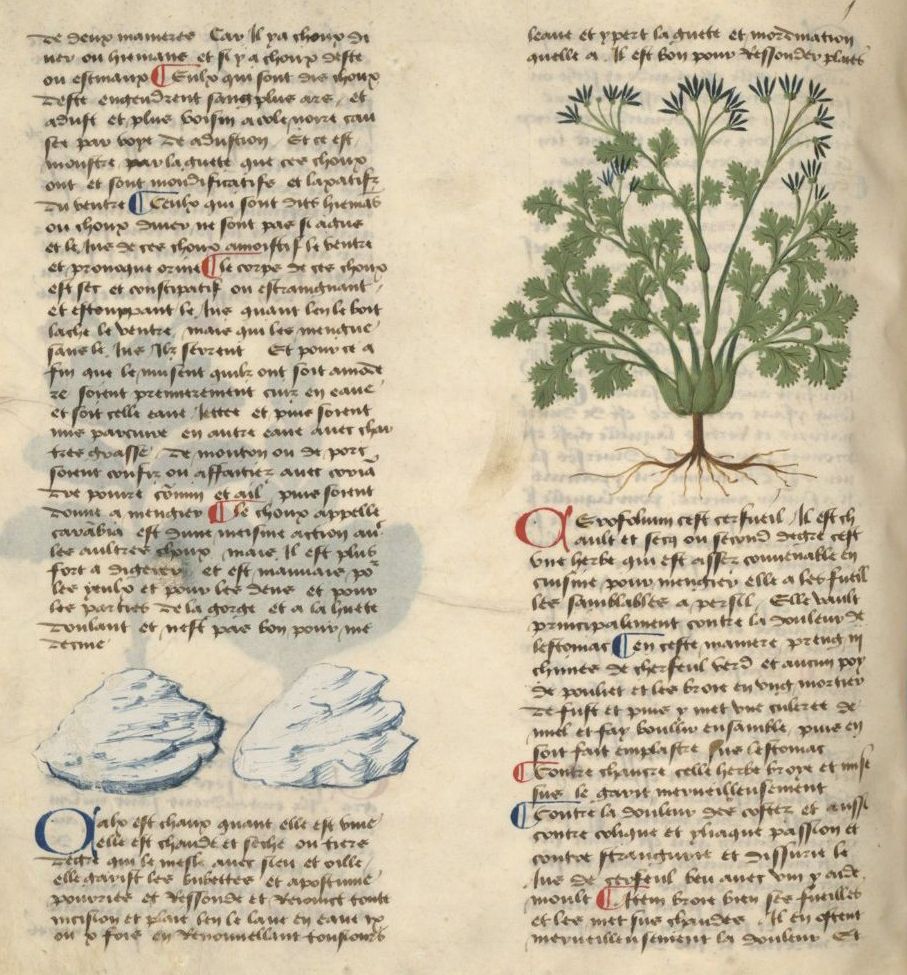 de deux manieres Car Il ya choux di
uer ou hiemaus et si y a choux deste
ou estiuaux Ceulx qui sont dis choux
deste engendrent sang plus are et
adust et plus voisin a cole noire cau
see par voye de adustion Et ce est
monstre par la guete que ces choux
ont et sont mondificatifz et laxatifz
du ventre Ceulx qui sont dits hiemas
ou choux diuer ne sont pas si agus
et le Jus de ces choux amoistist le ventre
et prouoque orine le corps de ces choux
est sec et constipatif ou estraingnant
et estouppant le Jus quant len le boit
lache le ventre mais qui les mengue
sans le Jus Ilz serrent Et pour ce a
fin que le nuisent quilz ont soit amode
re soient premierement cuiz en eaue
et soit celle eaue Jettee et puis soient
mis parcuire en autre eaue auec char
tres grasse de mouton ou de porc
soient confiz ou affaitiez auec coria
dre poiure comin et ail puis soient
donne a mengier le choux appelle
carabia est dune meisme action auec
les aultres choux mais Il est plus
fort a digerer et est mauuais por
les yeulx et pour les dens et pour
les parties de la gorge et a la luete
doulant et nest pas bon pour me
decine
Calx est chaux quant elle est viue
elle est chaude et seche ou tiers
degre qui le mesle auec sieu et oille
elle garist les bubettes et apostume
pourries et Ressoude et Reioinct toute
incision et plaie len le laue en eaue ix
ou x fois en Renouuellant tousiours
leaue et y pert la guete et mordination
quelle a Il est bon pour Ressouder plaies
Cerofolium cest cerfueil Il est ch
ault et secq ou second degre cest
vne herbe qui est assez conuenable en
cuisine pour mengier elle a les fueil
les samblables a persil Elle vault
principalment contre la douleur de
lestomac en ceste maniere preng iii
chimes de cherfeul verd et aucun poy
de pouliet et les broie en vng mortier
de fust et puis y met vne culeree de
miel et fay boullir ensamble puis en
soit fait emplastre sus lestomac
Contre chancre celle herbe broye et mise
sus le garit merueilleusement
Contre la douleur des costez et aussi
contre colique et yliaque passion et
contre strangurie et dissurie le
Jus de cerfeul beu auec vin y aide
moult Item broie bien ses fueilles
et les met sus chaudes Il en ostent
merueilleusement la douleur Et